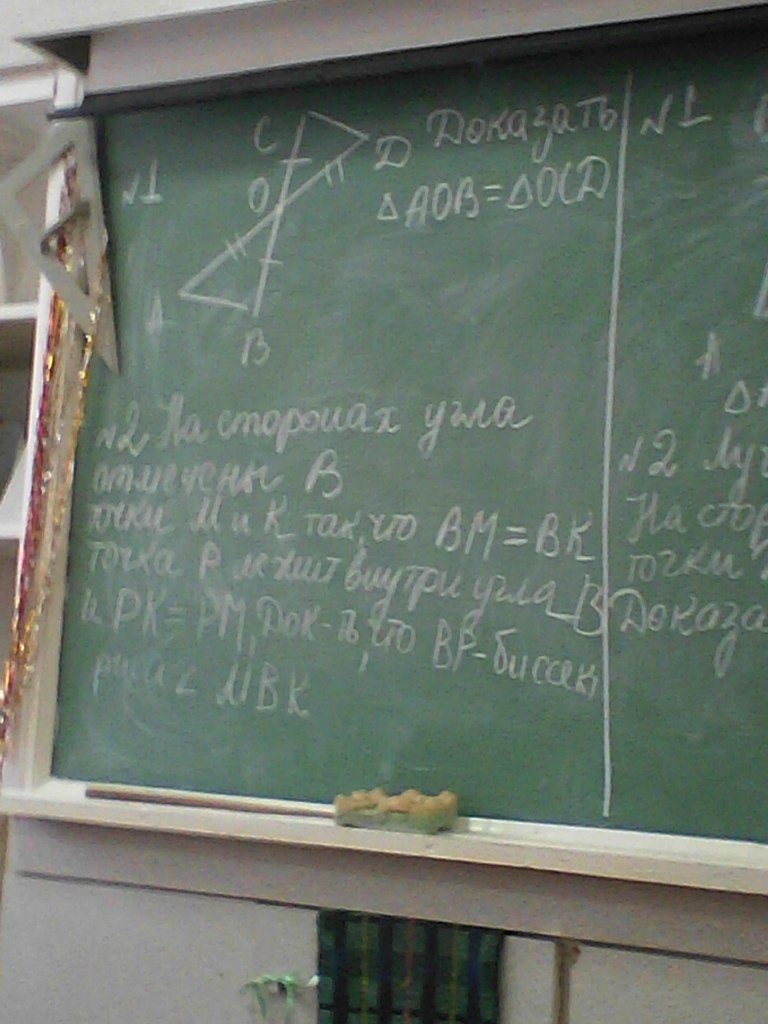 №1
C
D
O
A
B
Доказать
△AOB=△OCD
№2 На сторонах угла
отмечены B
точки M и K так, что BM=BK
точка P лежит внутри угла B
и PK=PM, Док-ть, что BP-биссек
риса ∠ MBK
№1
A
△
№2 Лу
На стор
точки
Доказа